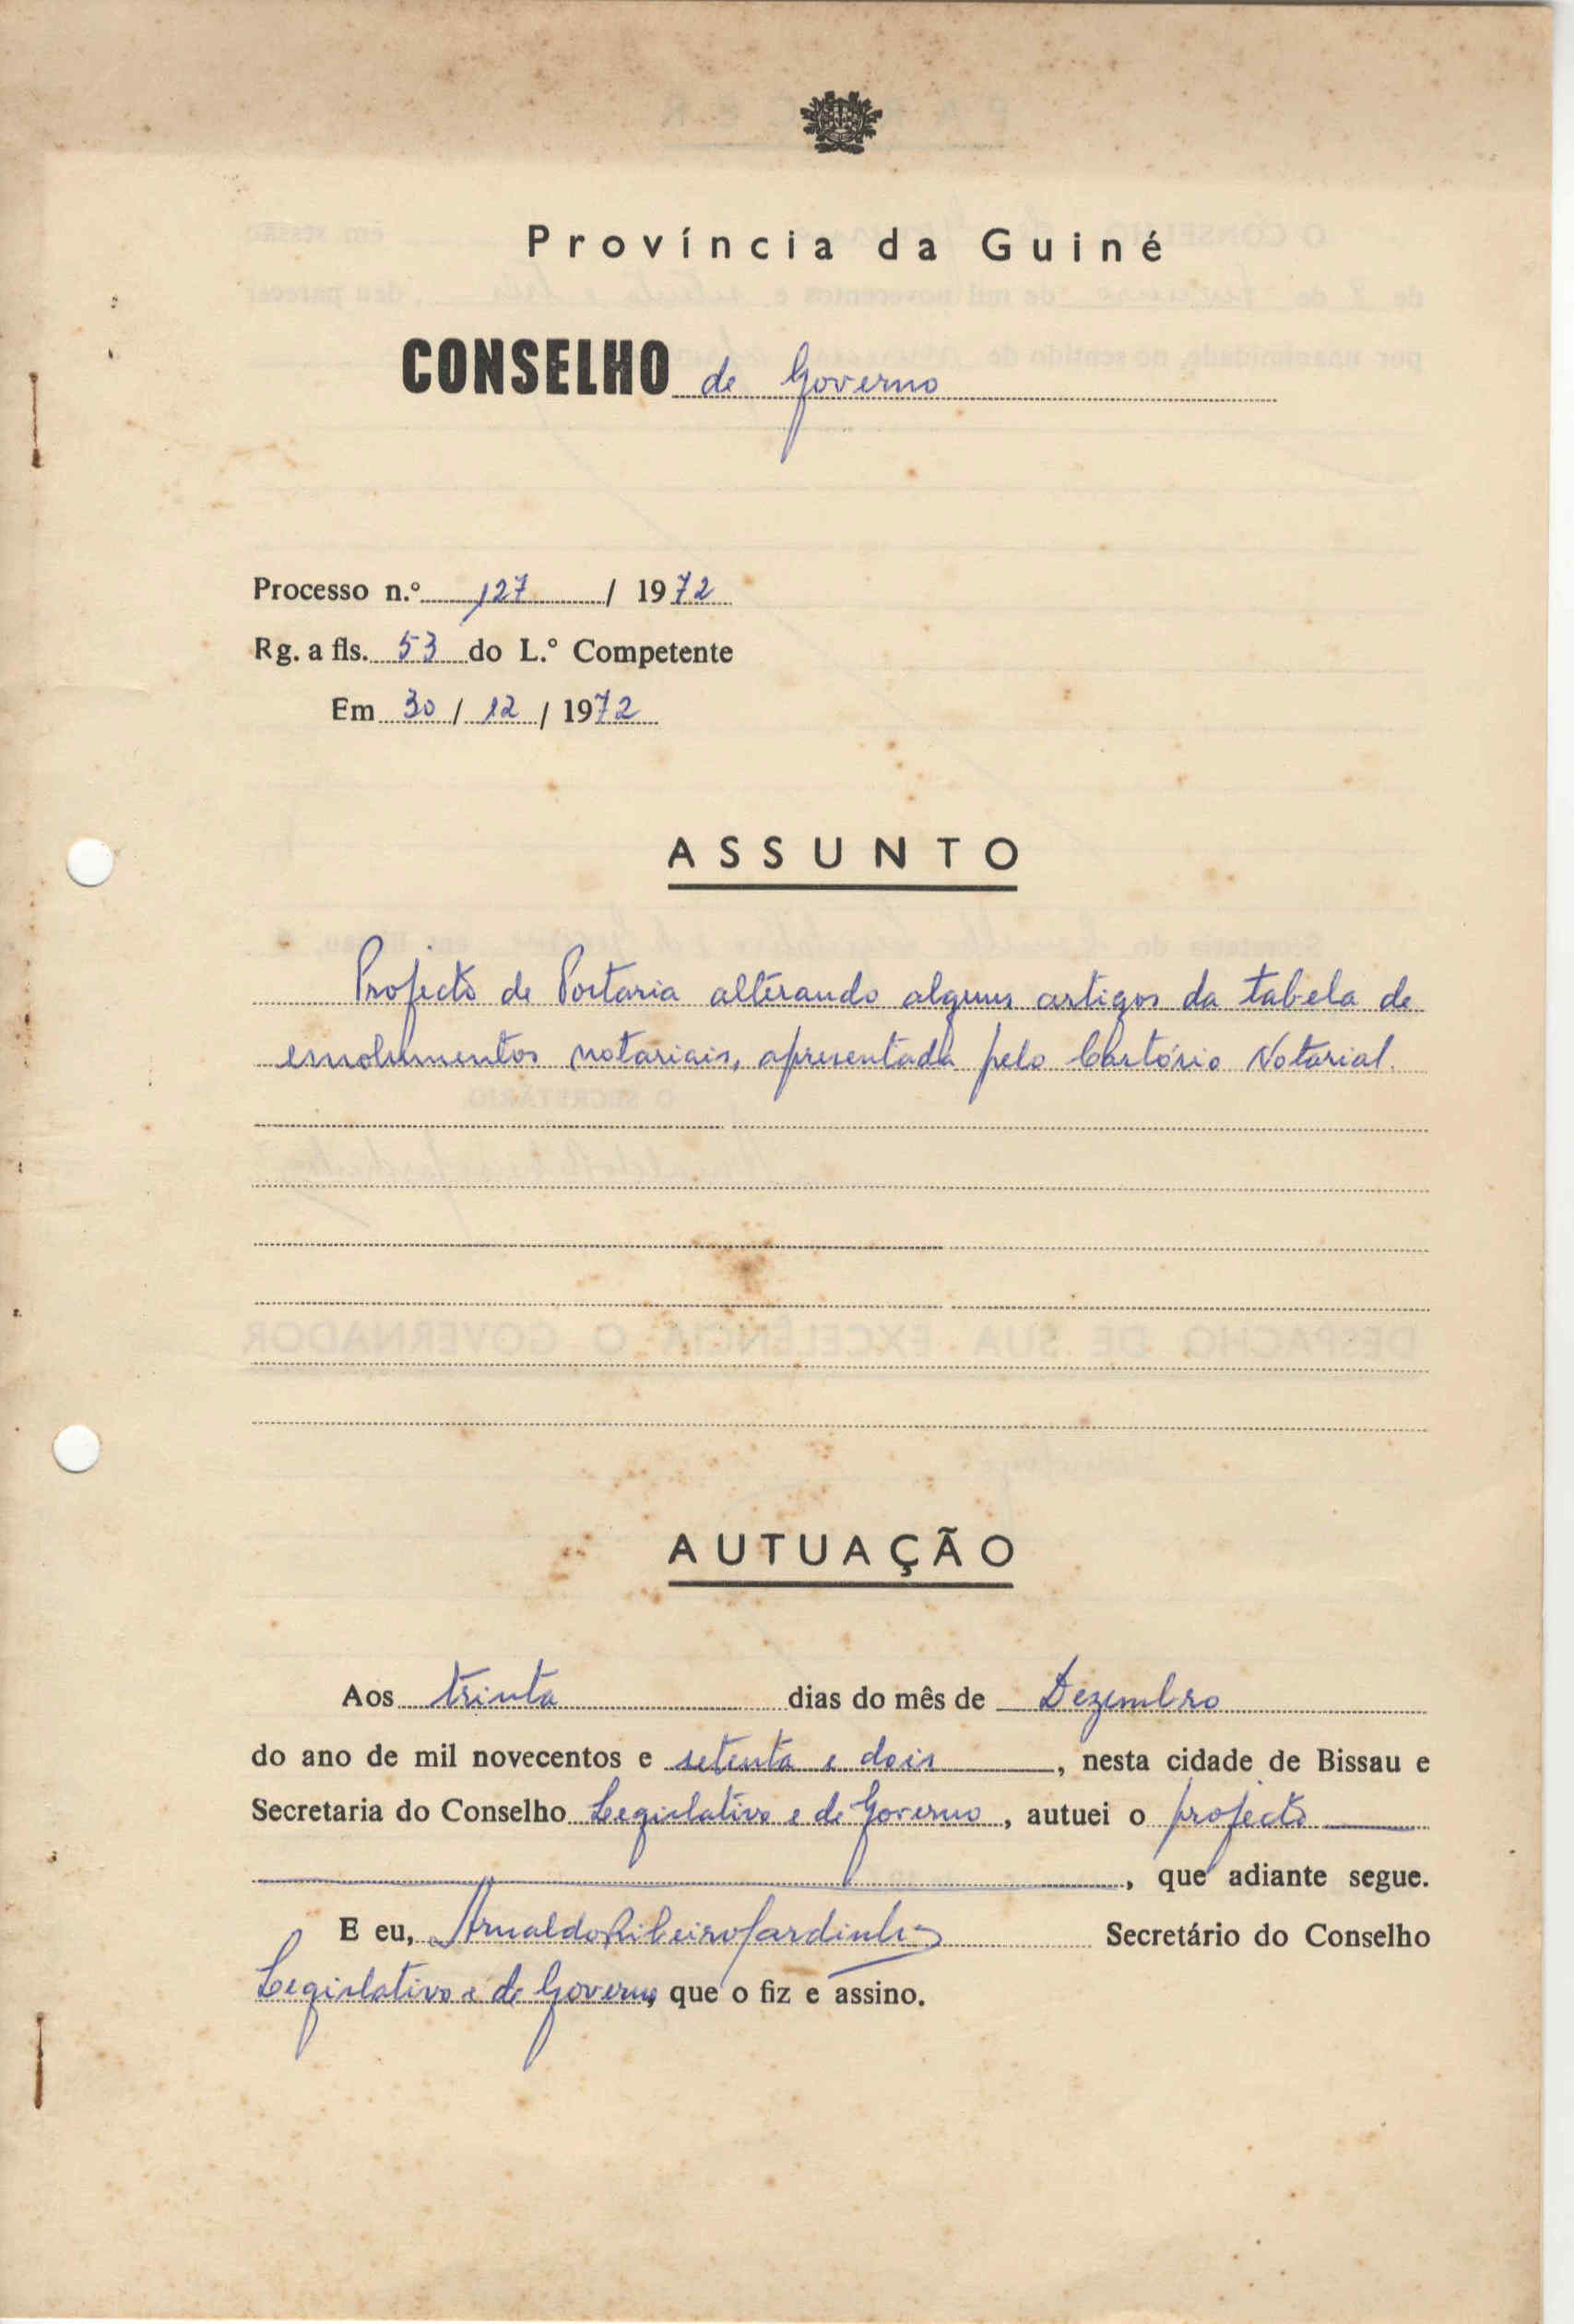 Província da Guiné
CONSELHO de Governo
Processo n.º 127 / 1972
Rg. a fls. 53 do L.º Competente
Em 30 / 12 / 1972
ASSUNTO
Projecto de Portaria alterando alguns artigos da tabela de
emolumentos notariais, apresentada pelo Cartório Notarial.
AUTUAÇÃO
Aos trinta dias do mês de Dezembro
do ano de mil novecentos e setenta e dois, nesta cidade de Bissau e
Secretaria do Conselho Legislativo e de Governo, autuei o projecto
, que adiante segue.
E eu, Arnaldo Ribeiro Sardinha Secretário do Conselho
Legislativo e de Governo, que o fiz e assino.